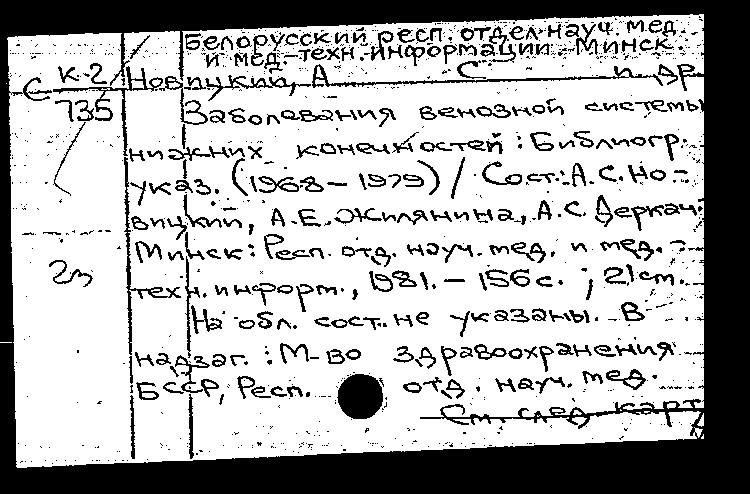 Белорусский респ. отдел науч. мед.
и мед.-техн. информации. Минск.
С К-2 Новицкий, А С и др
735 Заболевания венозной системы
нижних конечностей : Библиогр.
указ. (1968-1979) / Сост.: А.С. Но-
вицкий, А.Е. Жилянина, А.С. Деркач.-
Минск : Респ. отд. науч. мед. и мед.-
техн. информ., 1981. - 156 с. ; 21 см.
На обл. сост. не указаны. В
надзаг. : М-во здравоохранения
БССР, Респ. отд. науч. мед.
См. след. карт.